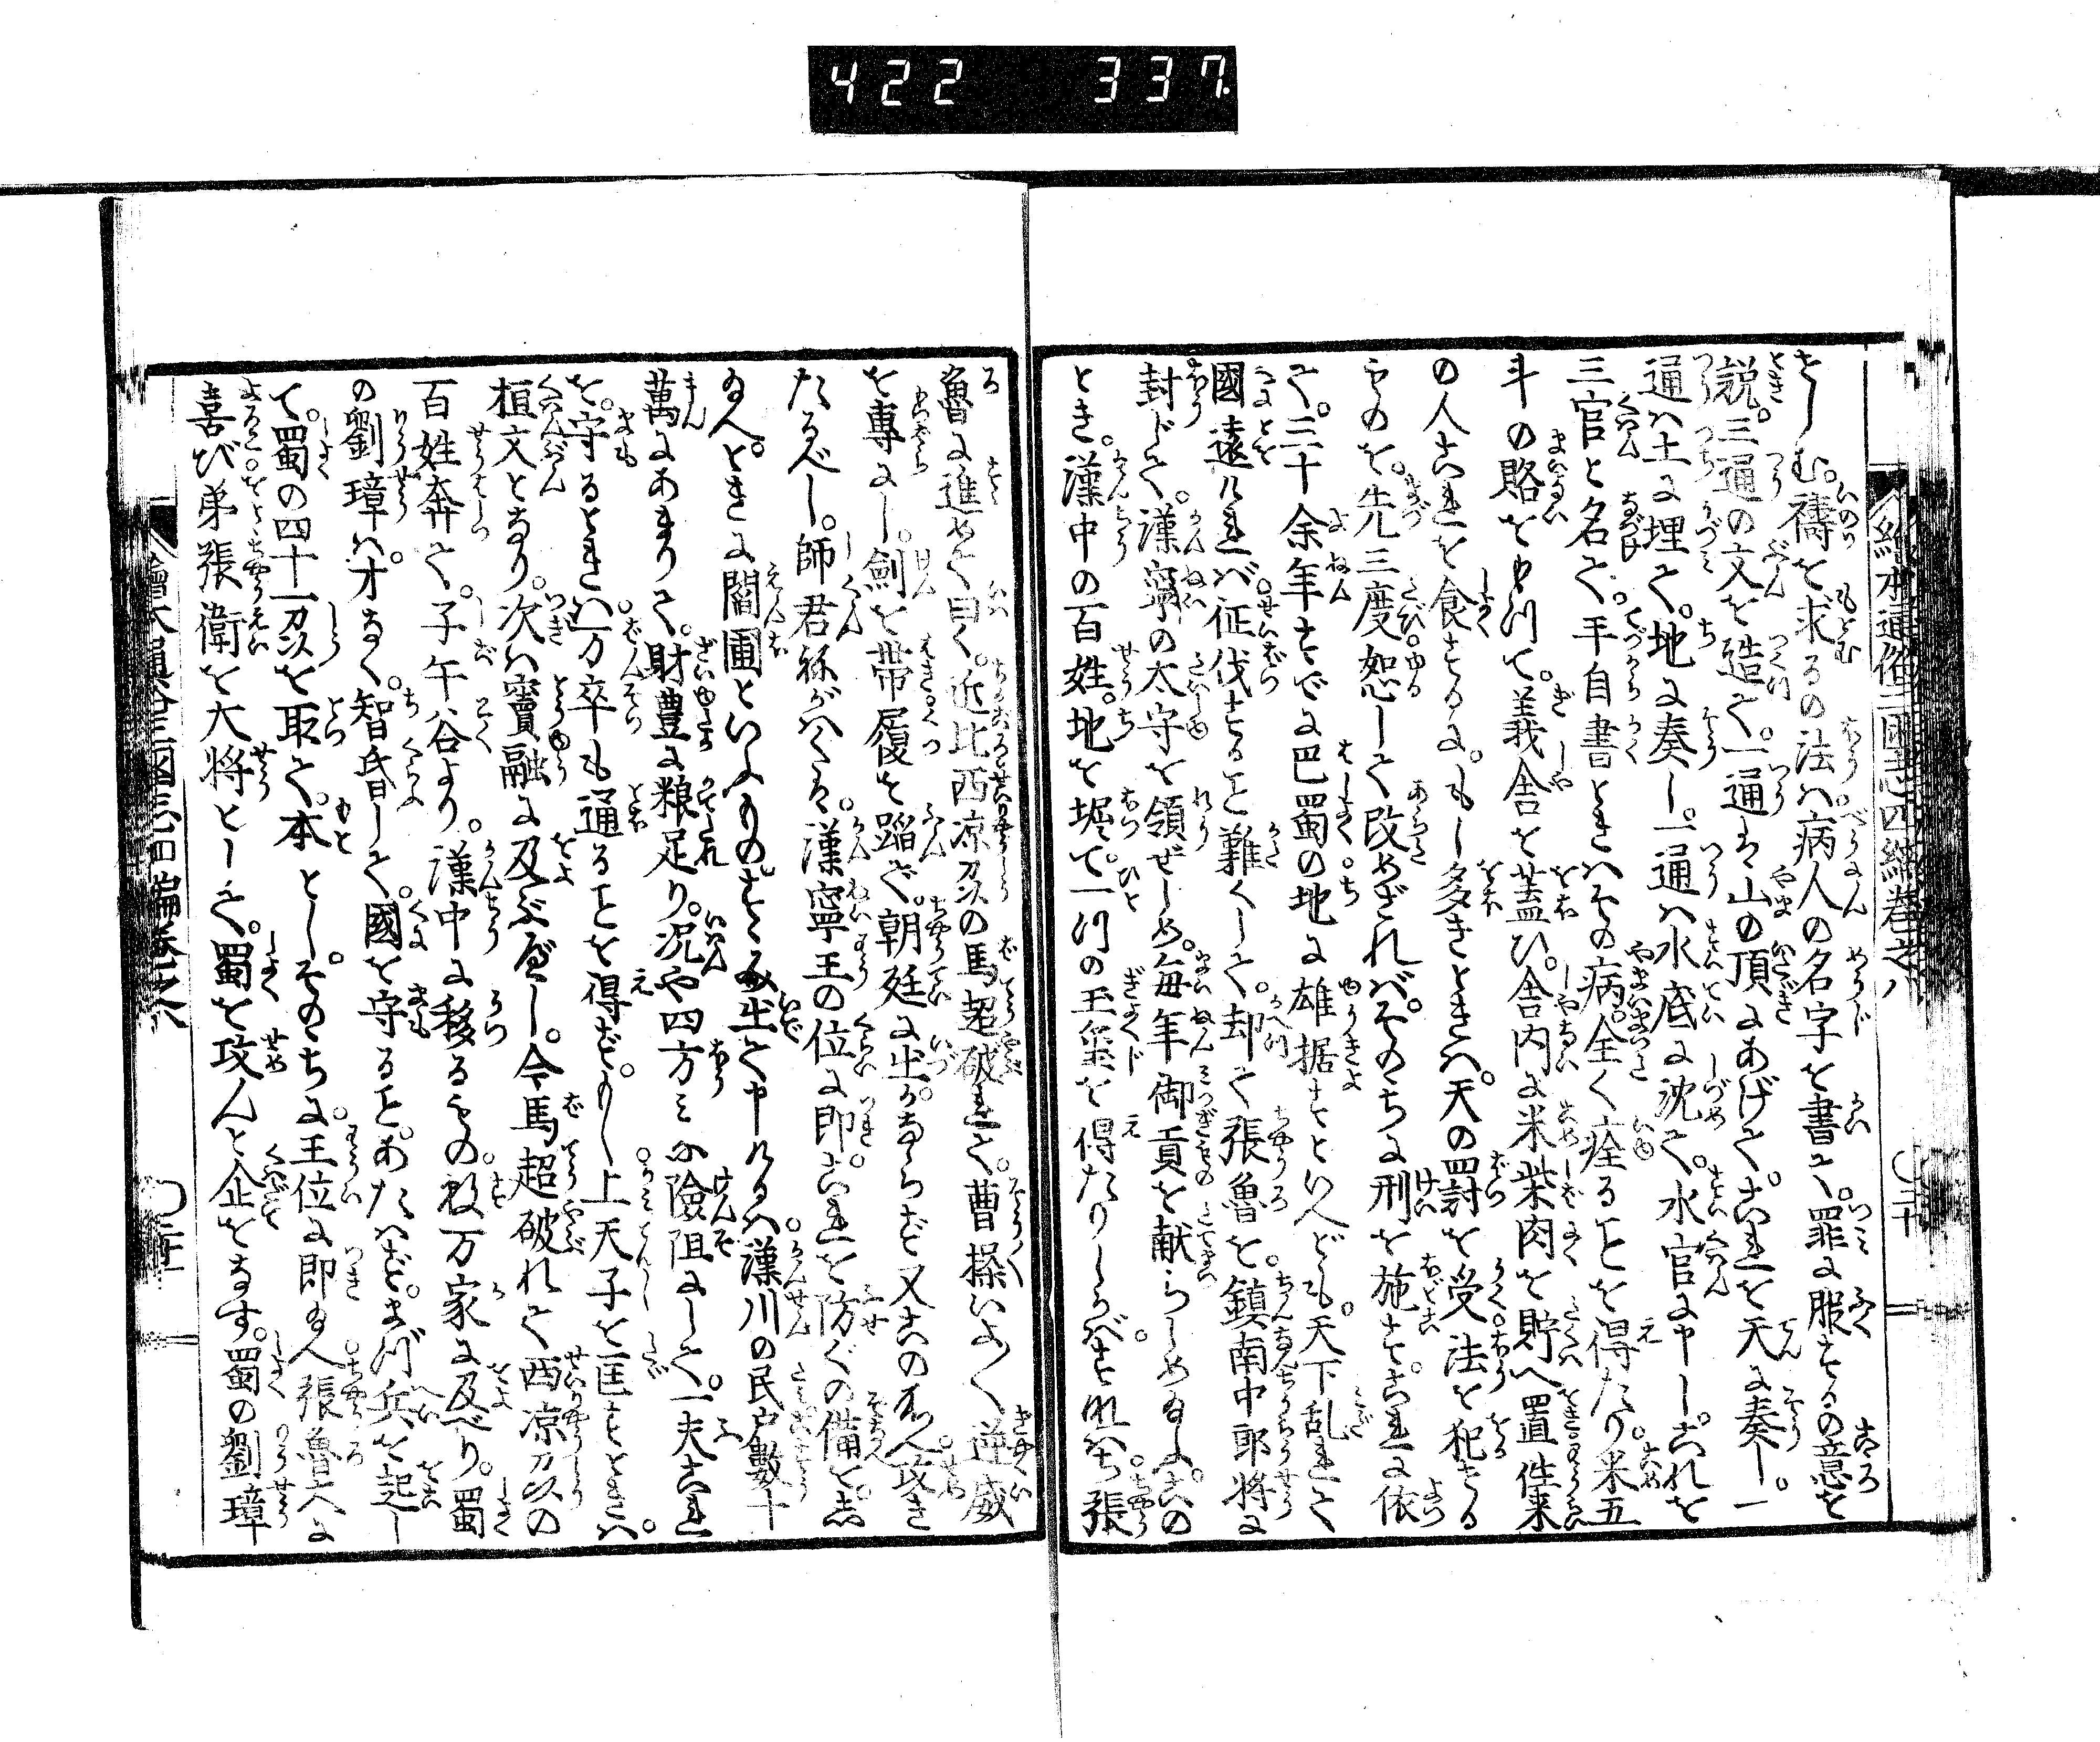 422 337
繪本通俗三國志四編卷之八 二十
さしむ。禱を求るの法は病人の名字を書て。罪に服するの意を
説。三通の文を造て。一通は山の頂にあげて。これを天に奏し。一
通は土に埋て。地に奏し。一通は水底に沈て。水官に申し。これを
三官と名て。手自書ときはその病。全く痊ることを得たり。米五
斗の賂をもつて。義舎を蓋ひ。舎内に米柴肉を貯へ置往来
の人これを食するに。もし多きときは。天の罸を受。法を犯する
ものを。先三度恕して改めざれば。そのちに刑を施す。これに依
て。三十余年すでに巴蜀の地に雄据すといへども。天下乱れて
國遠ければ。征伐すること難くして。却て張魯を。鎮南中郎将に
封じて。漢寧の太守を領ぜしめ。毎年御貢を献らしめ給ふ。この
とき。漢中の百姓。地を堀て。一つの玉璽を得たりしかば。すなはち張
魯に進めて曰く。近比西凉刕の馬超破れて。曹操いよ〱逆威
を專にし。劍を帯履を蹈で。朝廷に出。かならず又この処へ攻き
たるべし。師君称がへくは。漢寧王の位に即。これを防ぐの備をし
給へ。ときに閻圃といふもの。すゝみ出て申けるは。漢川の民戸數十
萬にあまりて。財豊に粮足り。况や四方みな險阻にして。一夫これ
を守るときは。万卒も通ることを得ず。もし上天子を匡すときは。
桓文となり。次は竇融に及ぶべし。今馬超破れて西凉刕の
百姓奔て。子午谷より。漢中に移るもの。数万家に及べり。蜀
の劉璋は。才なく。智昏して。國を守ることあたはず。まづ兵を起し
て。蜀の四十一刕を取て。本とし。そのちに。王位に即給へ。張魯大に
喜び弟張衛を大将として。蜀を攻んと企をなす。蜀の劉璋
繪本通俗三國志四編卷之八